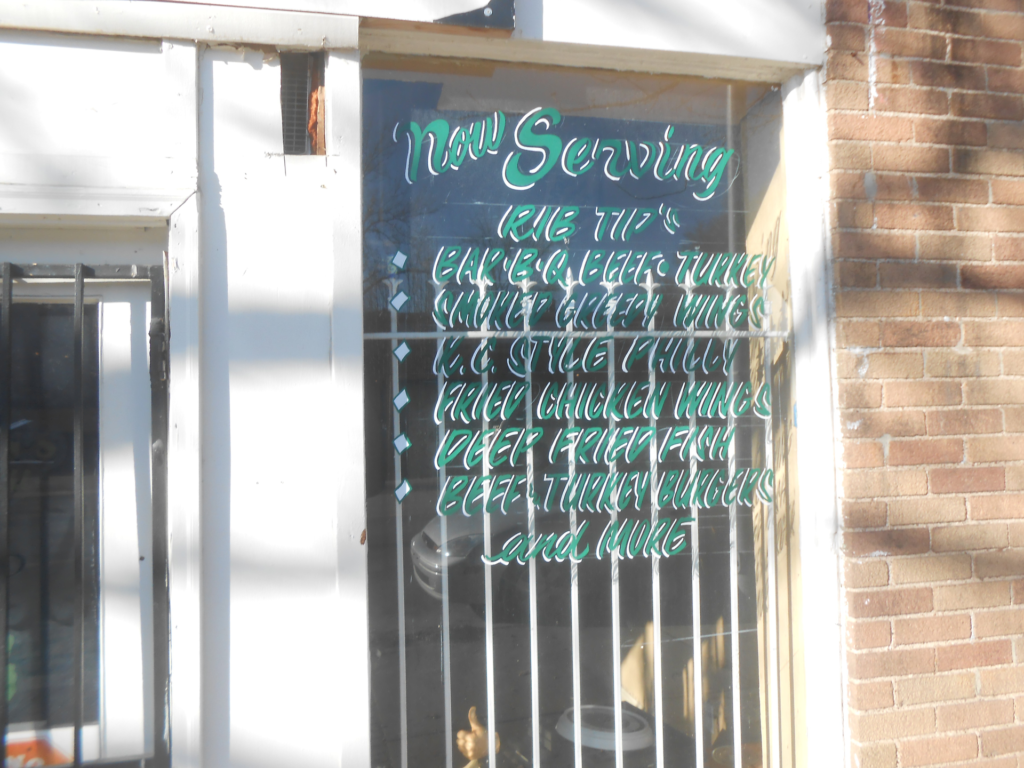 Now Serving
RIB TIP'S
BAR·B·Q BEEF·TURKEY
SMOKED GREEDY WINGS
K.C. STYLE PHILLY
FRIED CHICKEN WINGS
DEEP FRIED FISH
BEEF&TURKEY BURGERS
and MORE